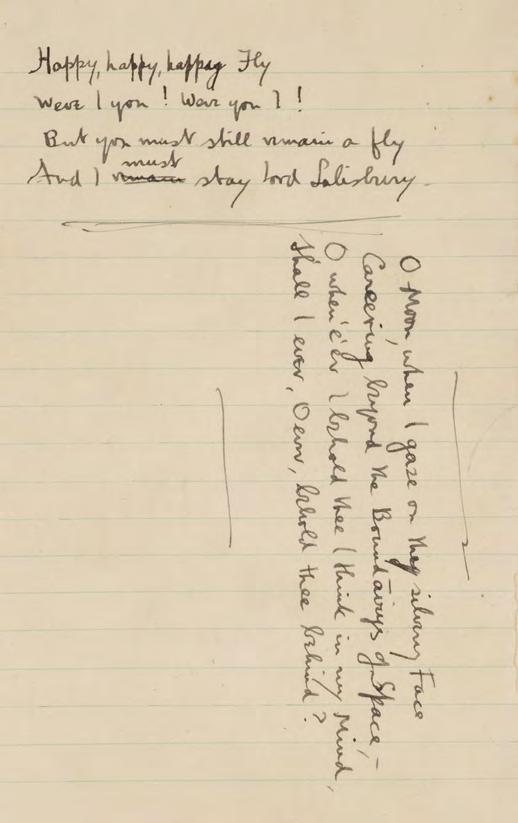 Happy, happy, happy Fly
Were I you! Were you I!
But you must still remain a fly
And I must stay Lord Salisbury.
O Moon, when I gaze on thy silvery Face
Careering beyond the Boundairys of Space,-
O when e'er I behold thee I think in my Mind,
Shall I ever, O ever, behold thee behind?